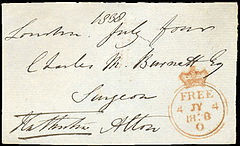 1838
London July four
Charles M. Burnett Esq
Surgeon
Alton
FREE
4 JY 4
1838